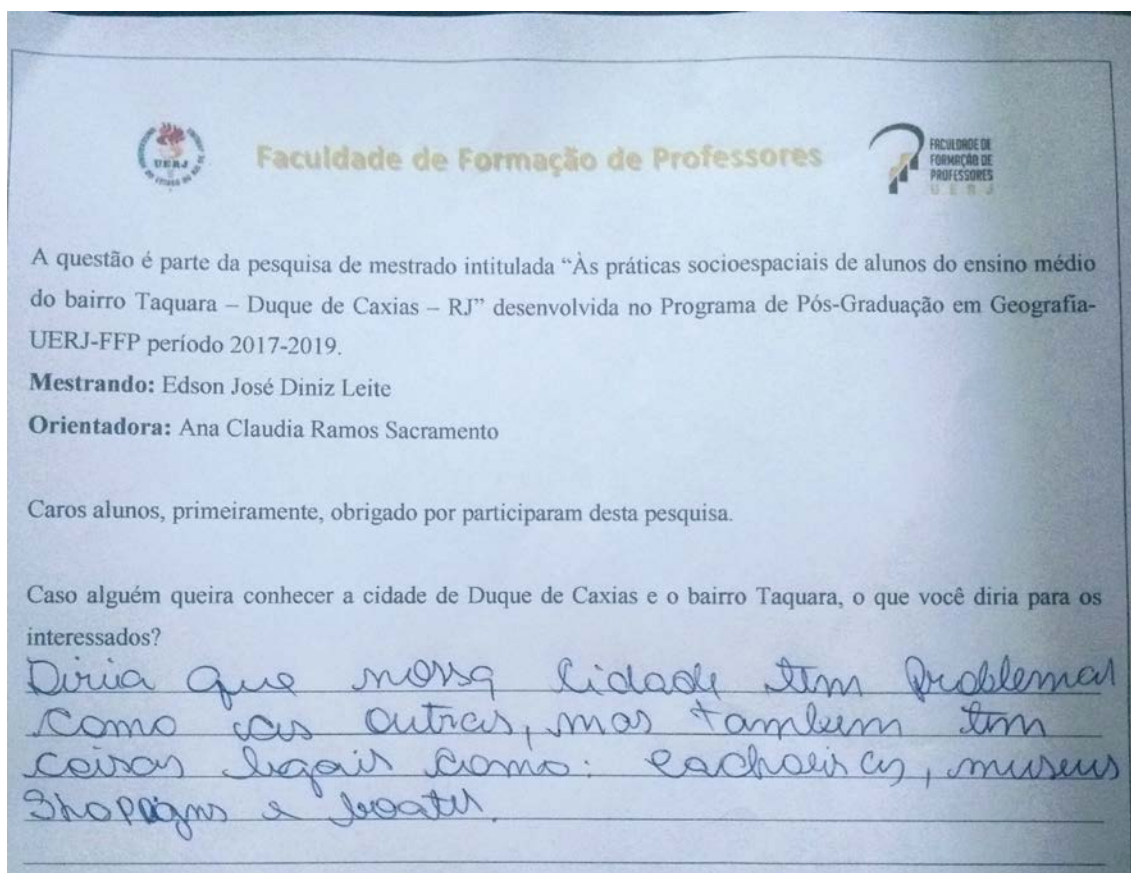 UERJ
Faculdade de Formação de Professores
FACULDADE DE
FORMAÇÃO DE
PROFESSORES
UERJ
A questão é parte da pesquisa de mestrado intitulada “Às práticas socioespaciais de alunos do ensino médio
do bairro Taquara – Duque de Caxias – RJ” desenvolvida no Programa de Pós-Graduação em Geografia-
UERJ-FFP período 2017-2019.
Mestrando: Edson José Diniz Leite
Orientadora: Ana Claudia Ramos Sacramento
Caros alunos, primeiramente, obrigado por participaram desta pesquisa.
Caso alguém queira conhecer a cidade de Duque de Caxias e o bairro Taquara, o que você diria para os
interessados?
Diria que nossa cidade tem problemas
como as outras, mas tambem tem
coisas legais como: cachoeiras, museus
Shoppigns e boates.